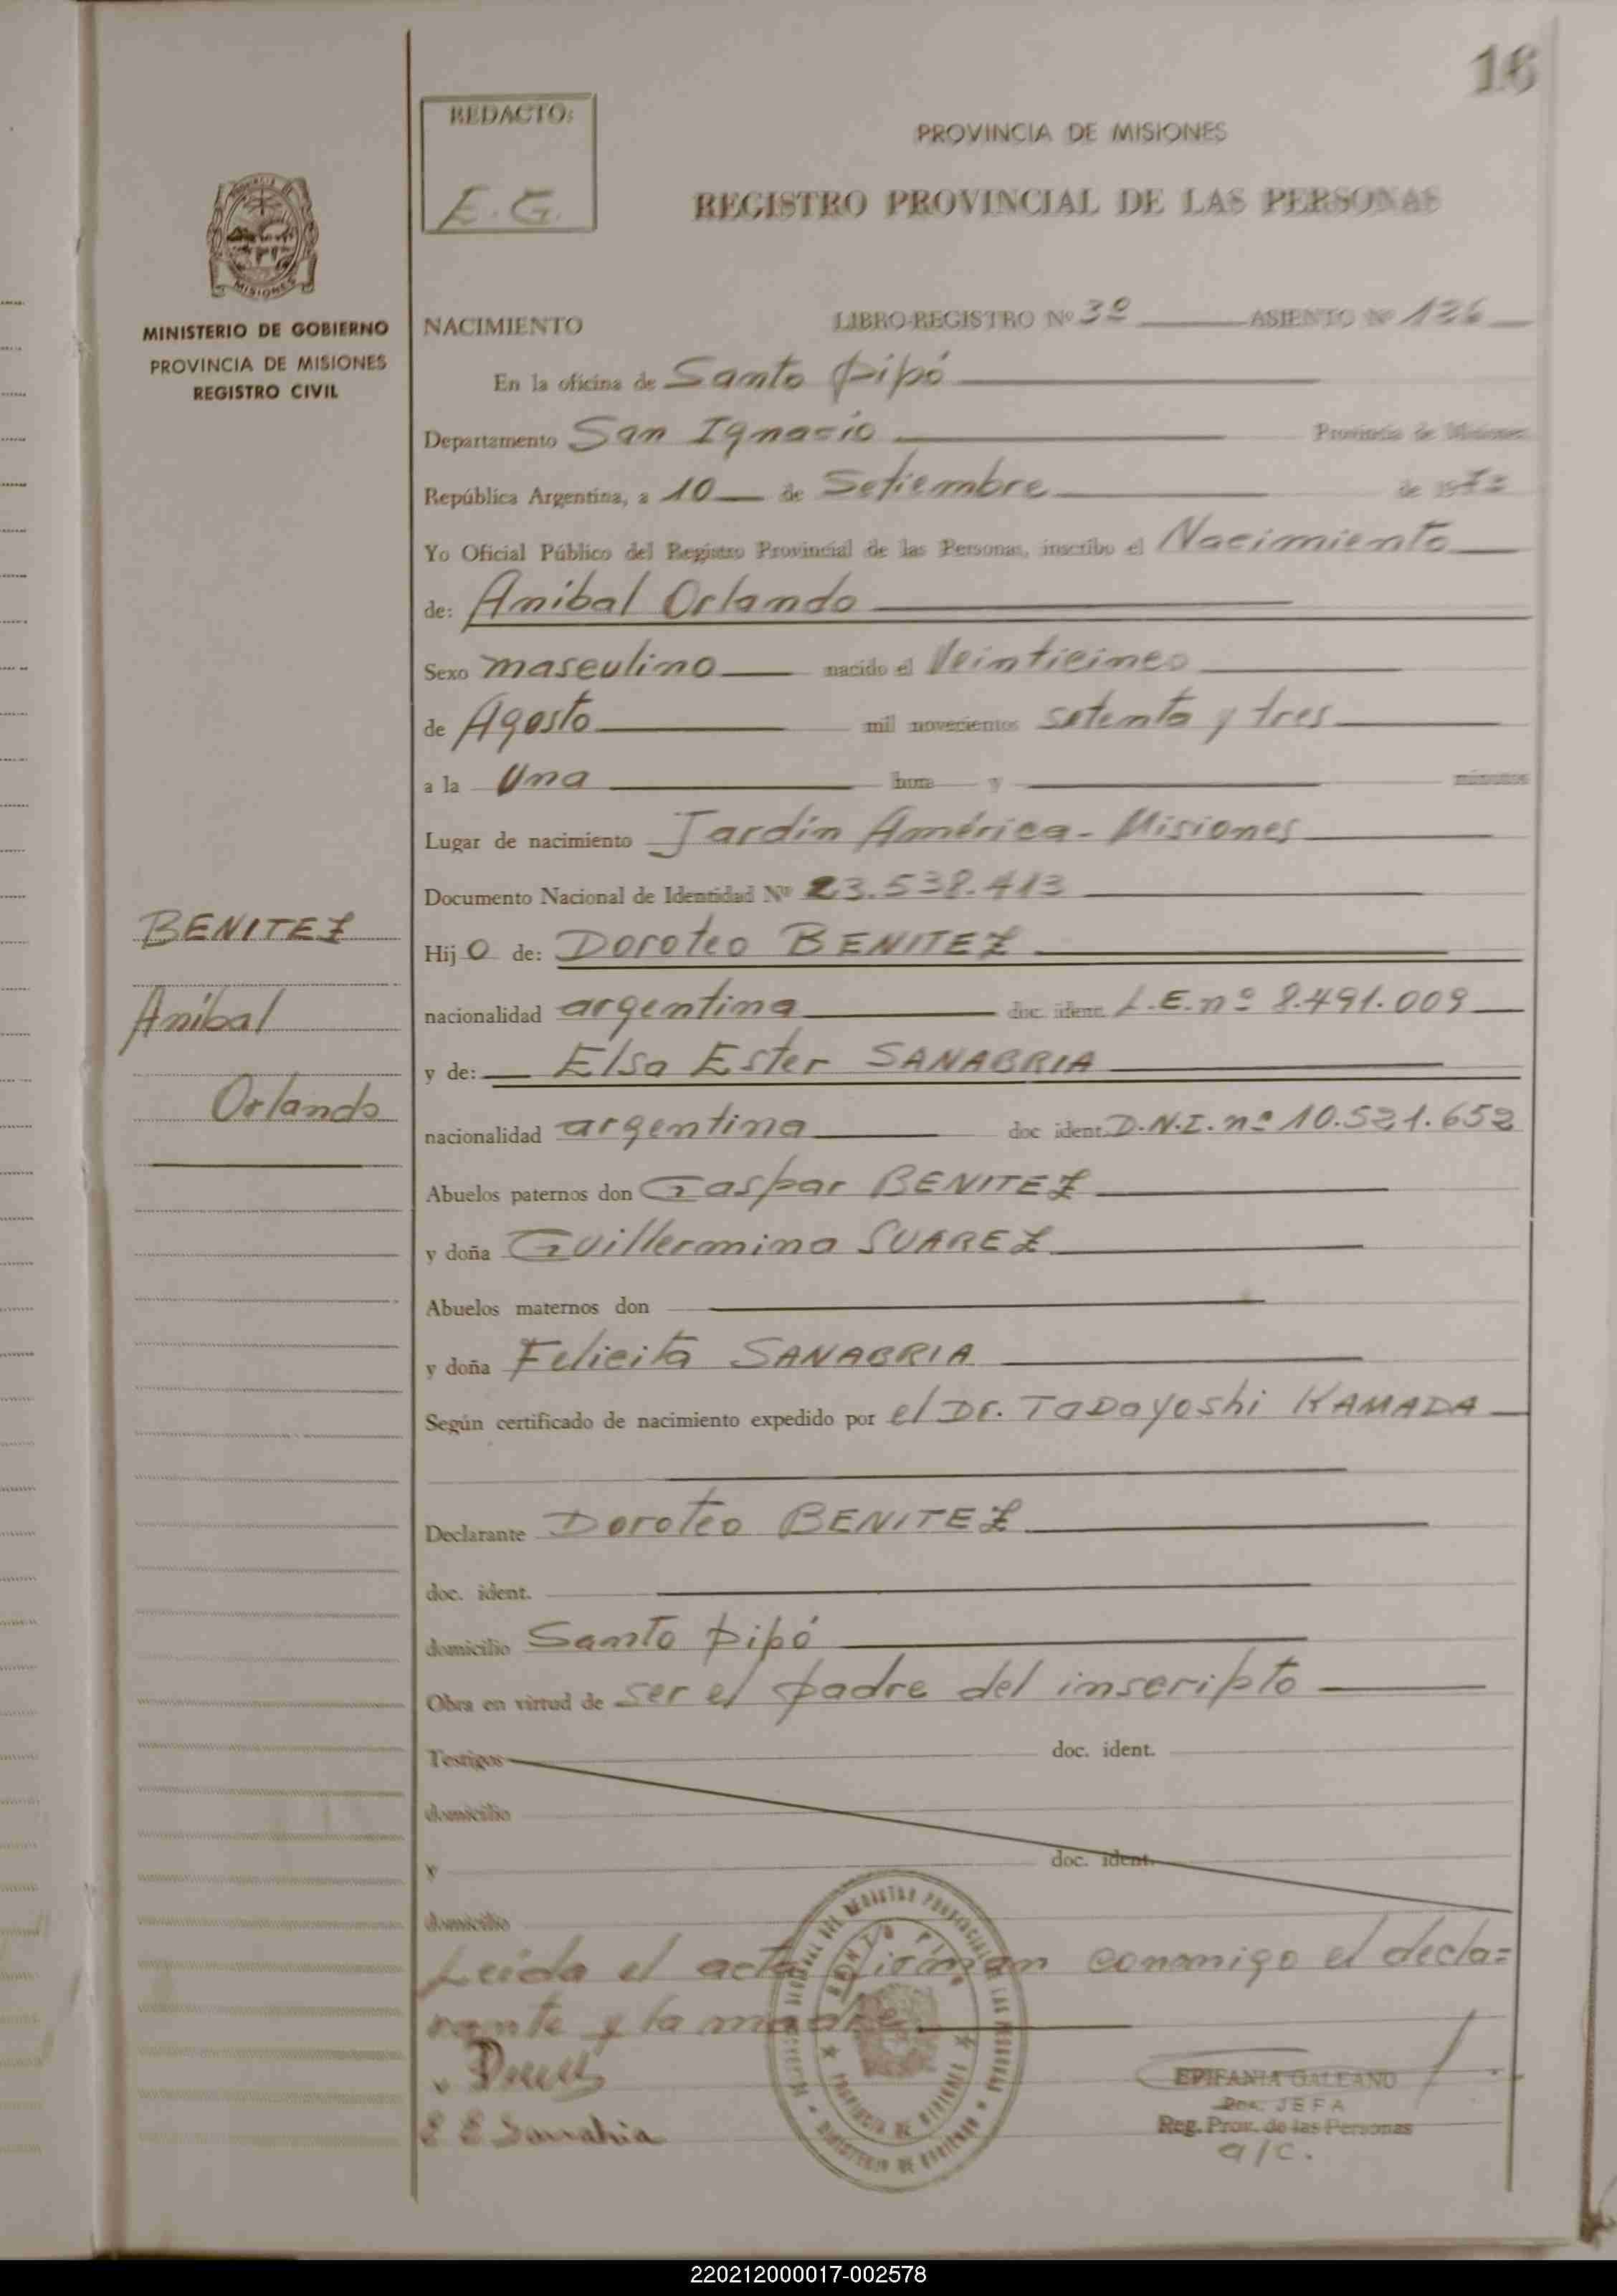 16
REDACTO:
E. G.
PROVINCIA DE MISIONES
REGISTRO PROVINCIAL DE LAS PERSONAS
MISIONES
MINISTERIO DE GOBIERNO
PROVINCIA DE MISIONES
REGISTRO CIVIL
NACIMIENTO LIBRO-REGISTRO Nº 3º ASIENTO Nº 126
En la oficina de Santo Pipó
Departamento San Ignacio Provincia de Misiones
República Argentina, a 10 de Setiembre de 1973
Yo Oficial Público del Registro Provincial de las Personas, inscribo el Nacimiento
de: Anibal Orlando
Sexo masculino nacido el Veinticinco
de Agosto mil novecientos setenta y tres
a la Una hora y minutos
Lugar de nacimiento Jardín América - Misiones
Documento Nacional de Identidad Nº 23.538.413
BENITEZ
Anibal
Orlando
Hijo de: Doroteo BENITEZ
nacionalidad argentina doc. ident. L.E. nº 8.491.009
y de: Elsa Ester SANABRIA
nacionalidad argentina doc ident. D.N.I. nº 10.521.652
Abuelos paternos don Gaspar BENITEZ
y doña Guillermina SUAREZ
Abuelos maternos don
y doña Felicita SANABRIA
Según certificado de nacimiento expedido por el Dr. TaDayoshi KAMADA
Declarante Doroteo BENITEZ
doc. ident.
domicilio Santo Pipó
Obra en virtud de ser el padre del inscripto
Testigos doc. ident.
domicilio
y doc. ident.
domicilio
Leida el acta firman conmigo el decla=
rante y la madre
E E Sanabria
EPIFANIA GALEANO
JEFA
Reg. Prov. de las Personas
a/c.
220212000017-002578